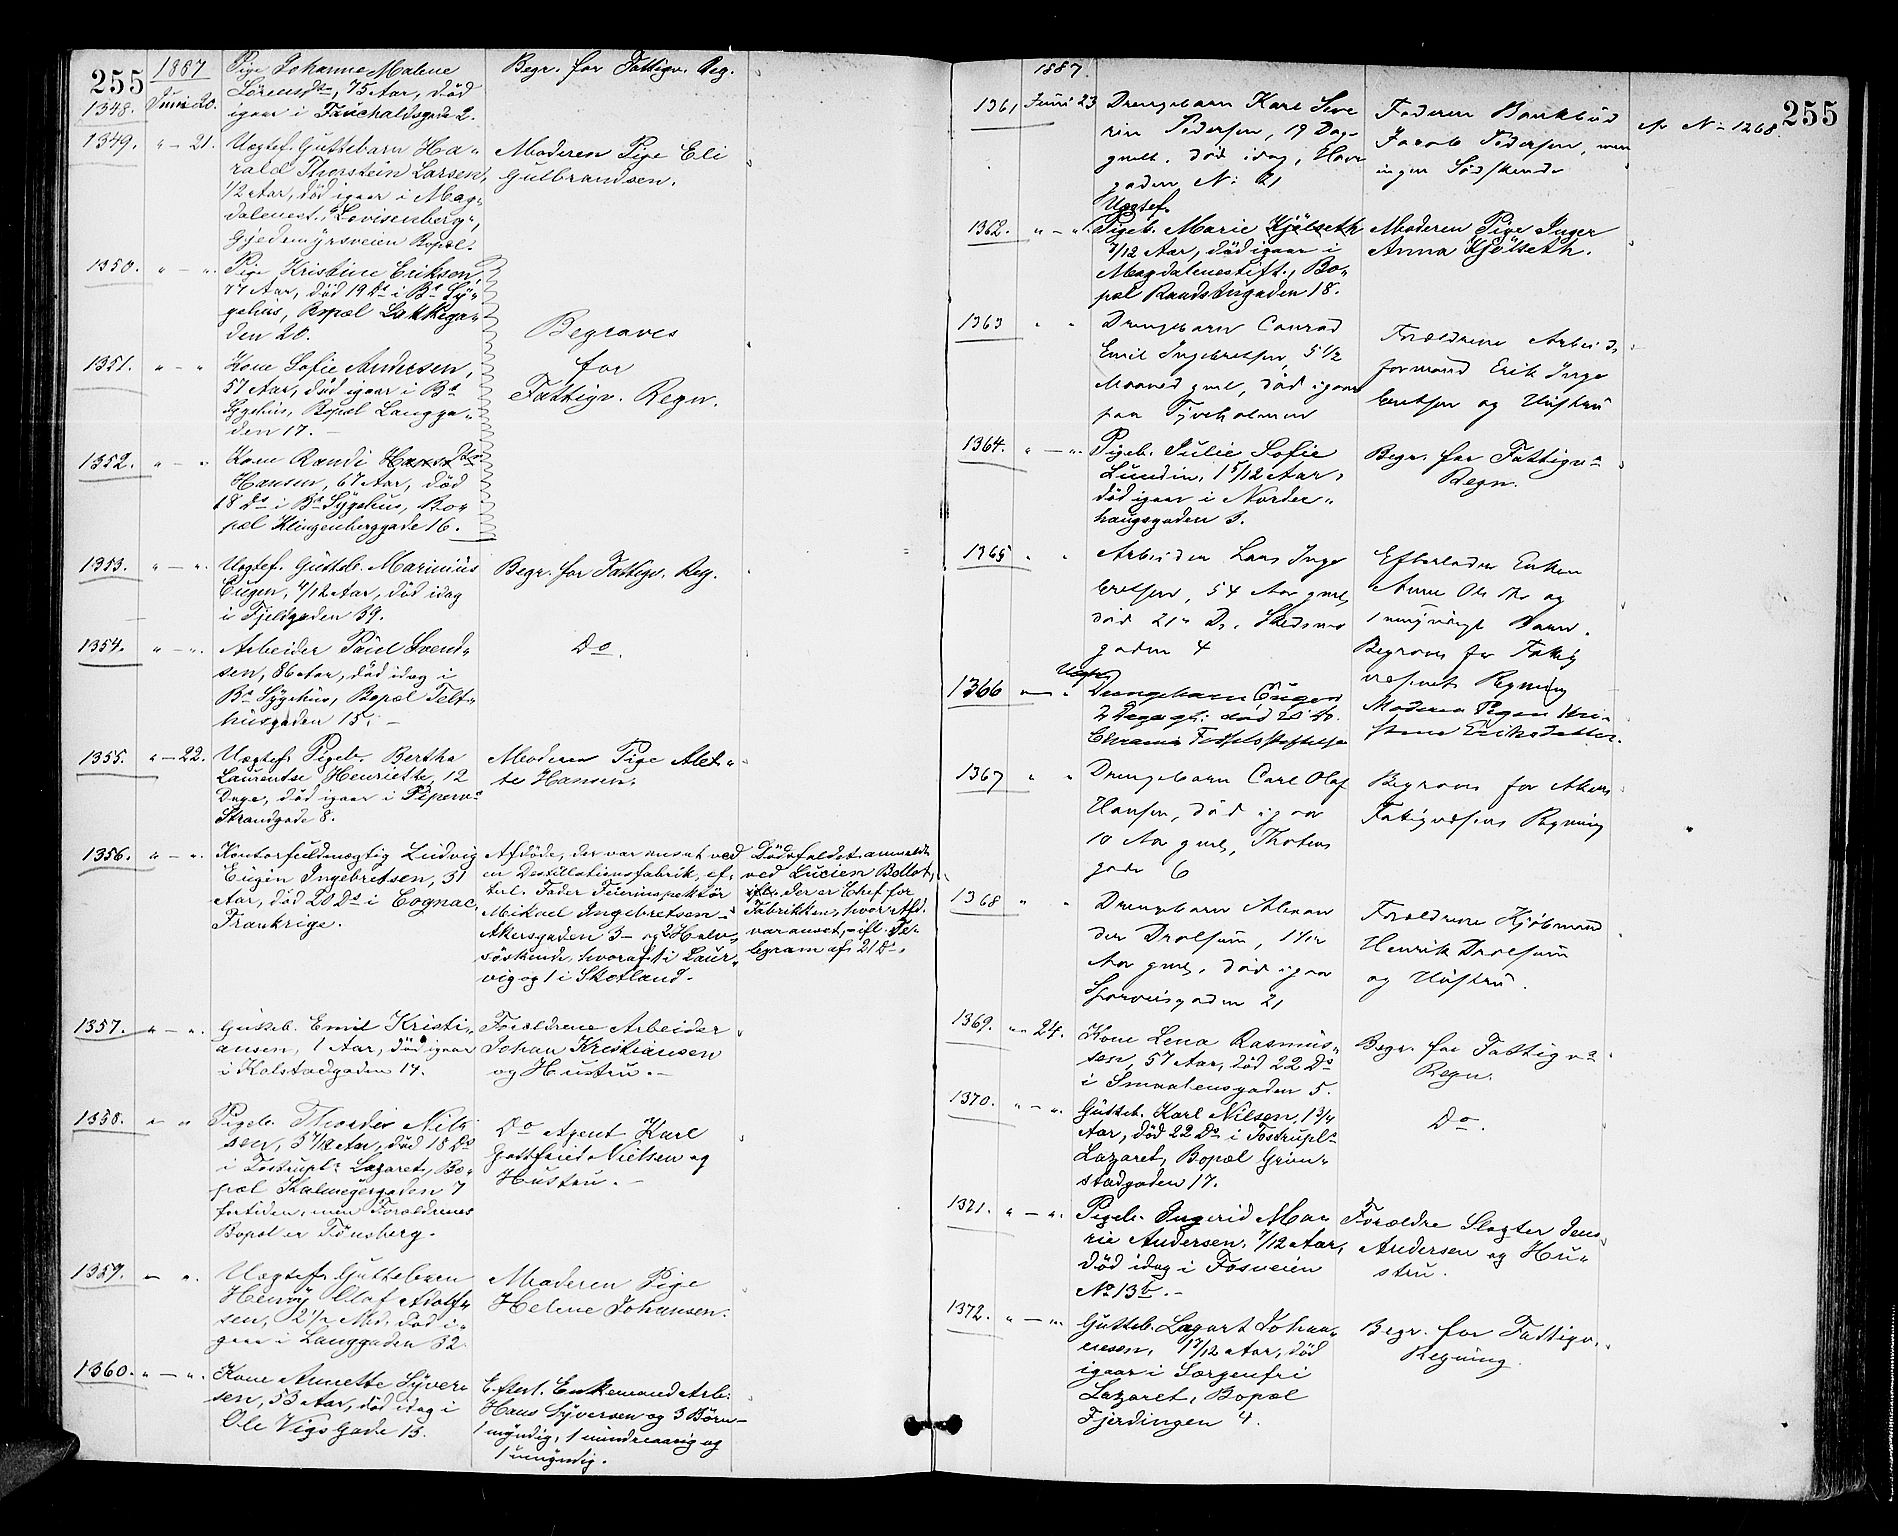 255
1887
1348. Juni 20.
Pige Johanne Malene
Sörensdtr, 75 Aar, död
igaar i Fauchaldsgade 2.
Begr. for Fattigv. Reg.
1349. " - 21.
Uægtef. Guttebarn Ha-
rald Thorstein Larsen,
1/2 Aar, död igaar i Mag-
dalenest. "Lovisenberg",
Gjedemyrsveien Bopæl.
Moderen Pige Eli
Gulbrandsen.
1350. " - ".
Pige Kristine Eriksen,
77 Aar, död 19 Ds i Bs Sy-
gehus, Bopæl Lakkega-
den 20.
1351. " - "
Kone Sofie Andersen,
57 Aar, död igaar i Bs
Sygehus, Bopæl Langga-
den 17. -
Begraves
for
Fattigv. Regn.
1352. " - "
Kone Randi Hansdtr
Hansen, 67 Aar, död
18 Ds i Bs Sygehus, Bo-
pæl Klingenberggade 16.
1353. " - ".
Uægtef. Gutteb. Marinius
Eugen, 4/12 Aar, död idag
i Fjeldgaden 39.
Begr. for Fattigv. Reg.
1354. " - ".
Arbeider Paul Svend-
sen, 86 Aar, död idag i
Bs Sygehus, Bopæl Telt-
husgaden 15. -
Do.
1355. " - 22.
Uægtef. Pigeb. Bertha
Laurentse Henriette, 12
Dage, död igaar i Piperv.
Strandgade 8.
Moderen Pige Alet-
te Hansen.
1356. " - ".
Kontorfuldmægtig Ludvig
Eugen Ingebretsen, 31
Aar, död 20 Ds i Cognac,
Frankrige.
Afdöde, der var ansat ved
en Destillationsfabrik, ef-
terl. Fader Feierinspektör
Mikael Ingebretsen -
Akersgaden 3 - og 2 Halv-
söskende, hvoraf 1 i Laur-
vig og 1 i Skotland.
Dödsfaldet anmeldt
ved Lucien Bellot,
der er Chef for
Fabrikken, hvor Afd.
var ansat, - ifl. Te-
legram af 21 Ds.
1357. " - ".
Gutteb. Emil Kristi-
ansen, 1 Aar, död igaar
i Kolstadgaden 14.
Forældrene Arbeider
Johan Kristiansen
og Hustru. -
1358. " "
Pigeb. Thordis Niel-
sen, 5 7/12 Aar, död 18 Ds
i Tostrupls Lazaret, Bo-
pæl Kalmeyergaden 7
fortiden, men Forældrenes
Bopæl er Tönsberg.
Do Agent Karl
Gottfried Nielsen og
Hustru. -
1359. " ".
Uægtef. Guttebarn
Henry Olaf Adolf-
sen, 2 1/2 Md. död i-
gaar i Langgaden 32.
Moderen Pige
Helene Johansen.
1360. " - ".
Kone Annette Syver-
sen, 53 Aar, död idag i
Ole Vigs Gade 13.
Efterl. Enkemand Arb:
Hans Syversen og 3 Börn -
1 myndig, 1 mindreaarig og
1 umyndig.
255
1887.
1361 Juni 23
Drengebarn Karl Seve
rin Pedersen, 19 Dage
gmlt. död idag, Hav
gaden No 21
Faderen Bankbud
Jacob Pedersen, men
ingen Södskende
cfr No 1268.
1362. " - "
Uægtef.
Pigeb. Marie Kjölseth
7/12 Aar, död igaar i
Magdalenestift., Bo-
pæl Randsburgaden 18.
Moderen Pige Inger
Anna Kjölseth.
1363 " "
Drengebarn Conrad
Emil Ingebretsen, 5 1/2
Maaned gml, död igaar
paa Tyveholmen
Forældrene Arbeids
formand Erik Inge
bretsen og Hustru
1364. " - ".
Pigeb. Julie Sofie
Lundin, 1 5/12 Aar,
död igaar i Norder-
haugsgaden 3.
Begr. for Fattigvs
Regn.
1365 " "
Arbeider Lars Inge
bretsen, 54 Aar gml,
död 21 Ds. Skedsmo
gaden 4
Efterlader Enken
Anne Olsdtr og
1 umyndigt Barn.
Begraves for Fattig
væsenets Regning
1366 " "
Uægte
Drengebarn Eugen
2 Dage gl: död 20 Ds.
Christiania Födselsstiftelse
Moderen Pigen Kri-
stine Eriksdatter.
1367 " "
Drengebarn Carl Olaf
Hansen, död igaar
10 Aar gml, Thotens
gade 6
Begraves for Akers
Fatigvæsens Regning
1368 " "
Drengebarn Alexan
der Drolsum, 1 1/12
Aar gml, död igaar
Sporveisgaden 21
Forældrene Kjöbmand
Henrik Drolsum
og Hustru.
1369. " " 24.
Kone Lena Rasmus-
sen, 57 Aar, död 22 Ds
i Smaalensgaden 5.
Begr. for Fattigvs
Regn.
1370. " - ".
Gutteb. Karl Nilsen, 1 3/4
Aar, död 22 Ds i Tostrupls
Lazaret, Bopæl Grön-
stadgaden 17.
Do.
1371. " - ".
Pigeb. Ingerid Ma-
rie Andersen, 7/12 Aar,
död idag i Fosveien
No 13b. -
Forældre Slagter Jens
Andersen og Hu-
stru.
1372. " - ".
Gutteb. Lagart Johan-
nesen, 1 7/12 Aar, död
igaar i Sorgenfri
Lazaret, Bopæl
Fjerdingen 4.
Begr. for Fattigv.
Regning.